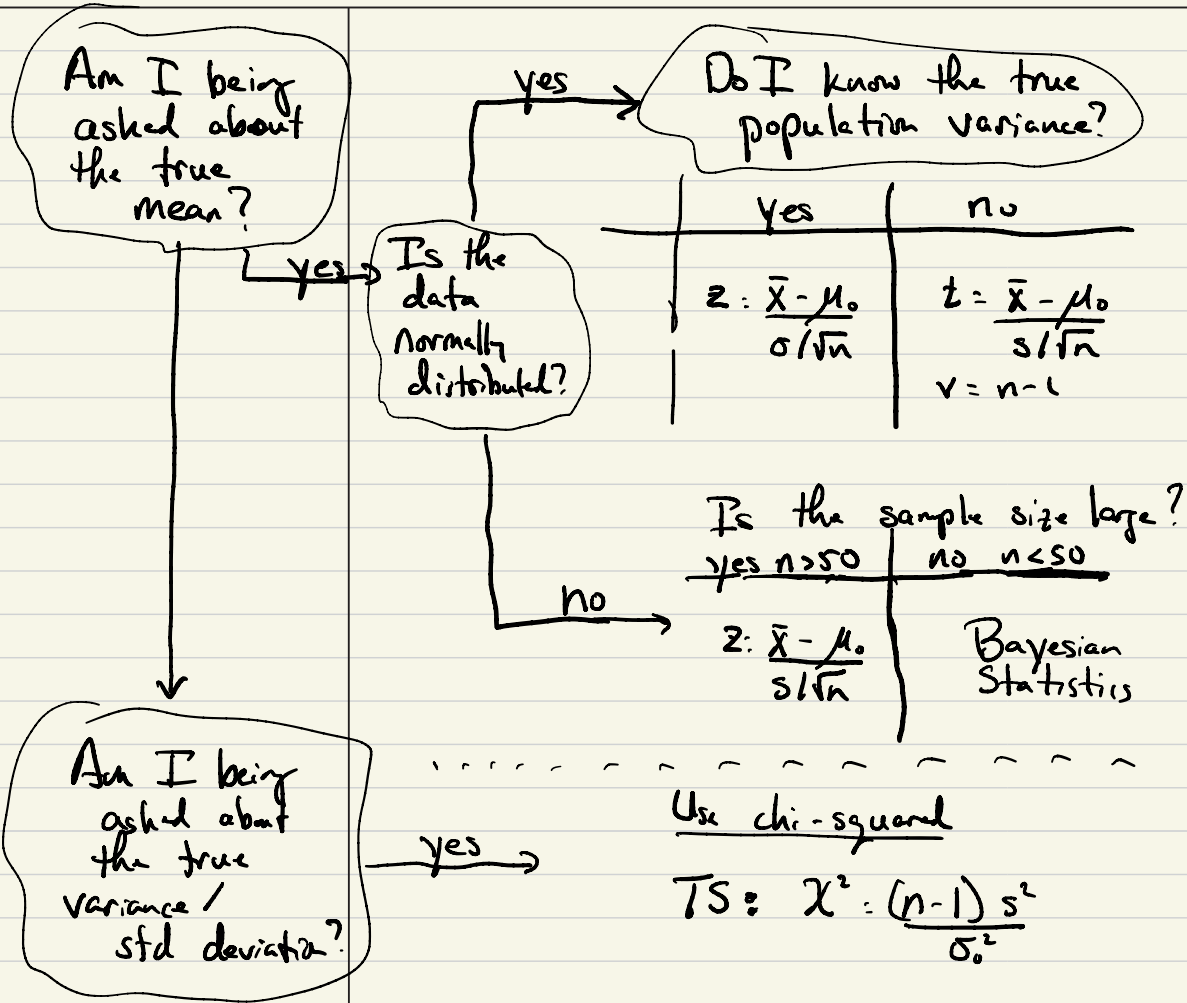 Am I being
asked about
the true
mean?
yes
Is the
data
normally
distributed?
yes
Do I know the true
population variance?
yes no
z: x̄ - μ₀ / σ/√n
t = x̄ - μ₀ / s/√n
v = n-1
no
Is the sample size large?
yes n>50 no n<50
z: x̄ - μ₀ / s/√n
Bayesian
Statistics
Am I being
asked about
the true
variance /
std deviation?
yes
Use chi-squared
TS: χ² = (n-1) s² / σ₀²